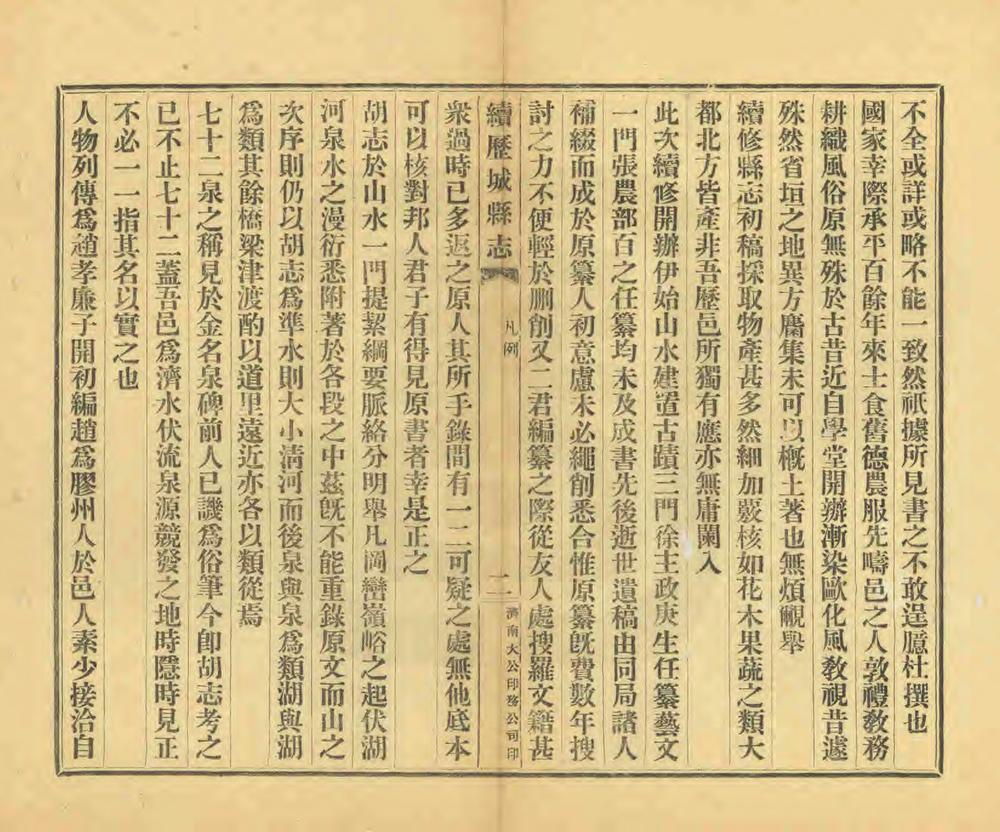 不全或詳或略不能一致然祇據所見書之不敢逞臆杜撰也
國家幸際承平百餘年來士食舊德農服先疇邑之人敦禮教務
耕織風俗原無殊於古昔近自學堂開辦漸染歐化風教視昔遠
殊然省垣之地異方麕集未可以概土著也無煩覼舉
續修縣志初稿採取物產甚多然細加覈核如花木果蔬之類大
都北方皆產非吾歷邑所獨有應亦無庸闌入
此次續修開辦伊始山水建置古蹟三門徐主政庚生任纂藝文
一門張農部百之任纂均未及成書先後逝世遺稿由同局諸人
補綴而成於原纂人初意慮未必繩削悉合惟原纂旣費數年搜
討之力不便輕於刪削又二君編纂之際從友人處搜羅文籍甚
續歷城縣志
凡例
二
濟南大公印務公司印
衆過時已多返之原人其所手錄間有一二可疑之處無他底本
可以核對邦人君子有得見原書者幸是正之
胡志於山水一門提絜綱要脈絡分明舉凡岡巒嶺峪之起伏湖
河泉水之漫衍悉附著於各段之中茲旣不能重錄原文而山之
次序則仍以胡志爲準水則大小淸河而後泉與泉爲類湖與湖
爲類其餘橋梁津渡酌以道里遠近亦各以類從焉
七十二泉之稱見於金名泉碑前人已譏爲俗筆今卽胡志考之
已不止七十二蓋吾邑爲濟水伏流泉源競發之地時隱時見正
不必一一指其名以實之也
人物列傳爲趙孝廉子開初編趙爲膠州人於邑人素少接洽自